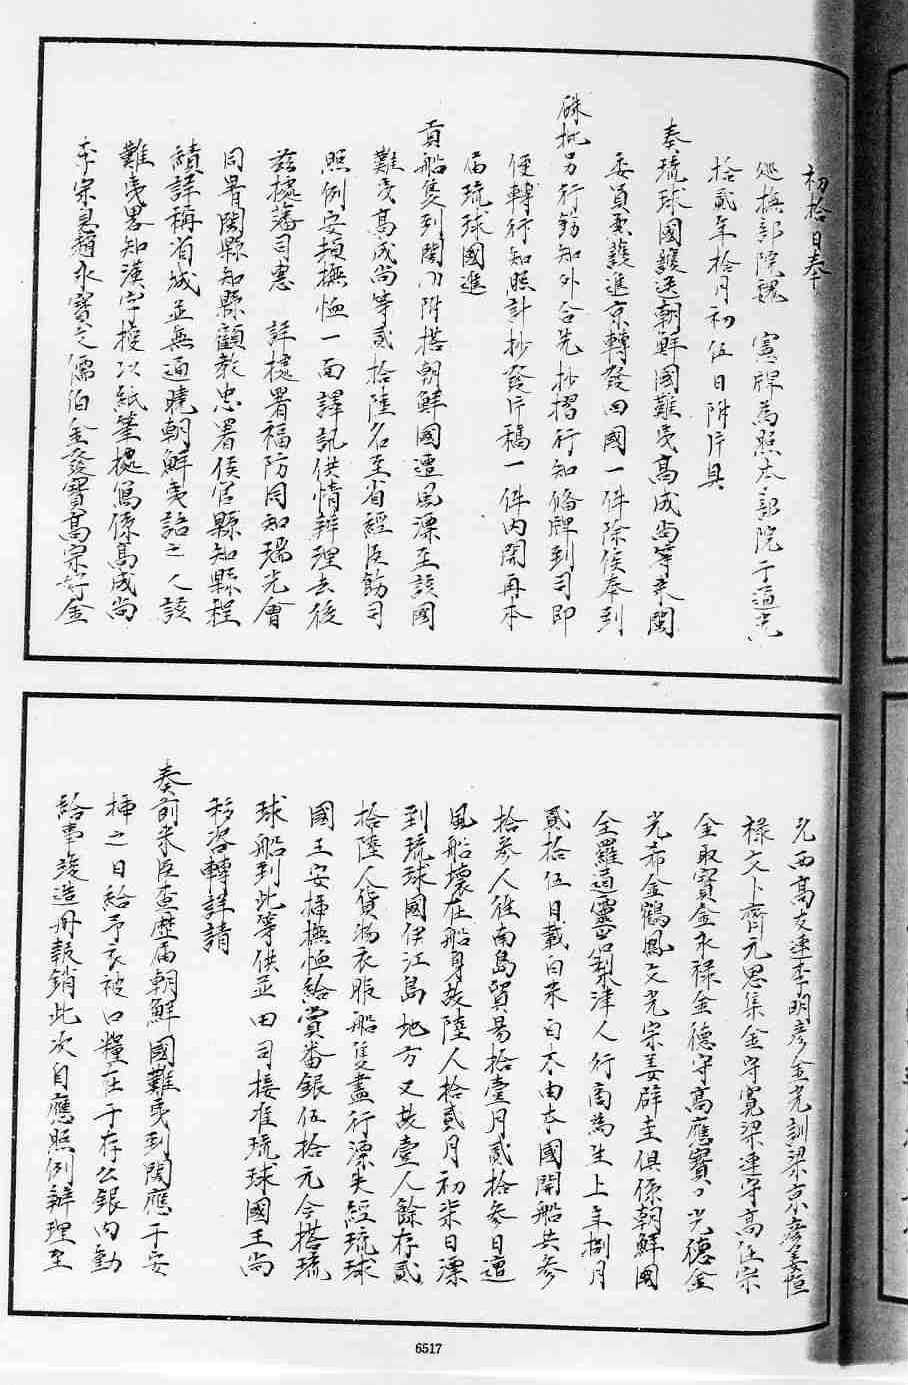 初拾日奉
巡撫部院魏　憲牌為照本部院于道光
拾貳年拾月初伍日附片具
奏琉球國護送朝鮮國難夷高成尚等來閩
委員伴護進京轉發回國一件除俟奉到
硃批另行錄知外合先抄摺行知俻牌到司即
便轉行知照計抄發片稿一件內開再本
屆琉球國進
貢船隻到閩附搭朝鮮國遭風漂至該國
難夷高成尚等貳拾陸名至省經臣飭司
照例安頓撫恤一面譯訊供情辨理去後
茲據藩司惠　詳據署福防同知瑞光會
同署閩縣知縣顧教忠署侯官縣知縣程
績詳稱省城並無通曉朝鮮夷語之人該
難夷畧知漢字授以紙筆據寫係高成尚
李宗息趙永寶文儒伯金發寶高宗好金
允西高文連李明彥金光訓梁京彥姜恒
祿文卜齊元思集金守寬梁連守高任宗
金取寶金永祿金德守高應寶文光德金
光希金鶴鳳文光宗姜辟圭俱係朝鮮國
全羅道靈岩梨津人行商為生上年捌月
貳拾伍日載白米白木由本國開船共參
拾參人徃南島貿易拾壹月貳拾參日遭
風船壞在船身故陸人拾貳月初柒日漂
到琉球國伊江島地方又故壹人餘存貳
拾陸人貨物衣服船隻盡行漂失經琉球
國王安插撫恤給賞番銀伍拾元今搭琉
球船到此等供並由司接准琉球國王尚
移咨轉詳請
奏前來臣查歷屆朝鮮國難夷到閩應于安
插之日給予衣被口糧在于存公銀內動
給事竣造冊報銷此次自應照例辨理至
6517